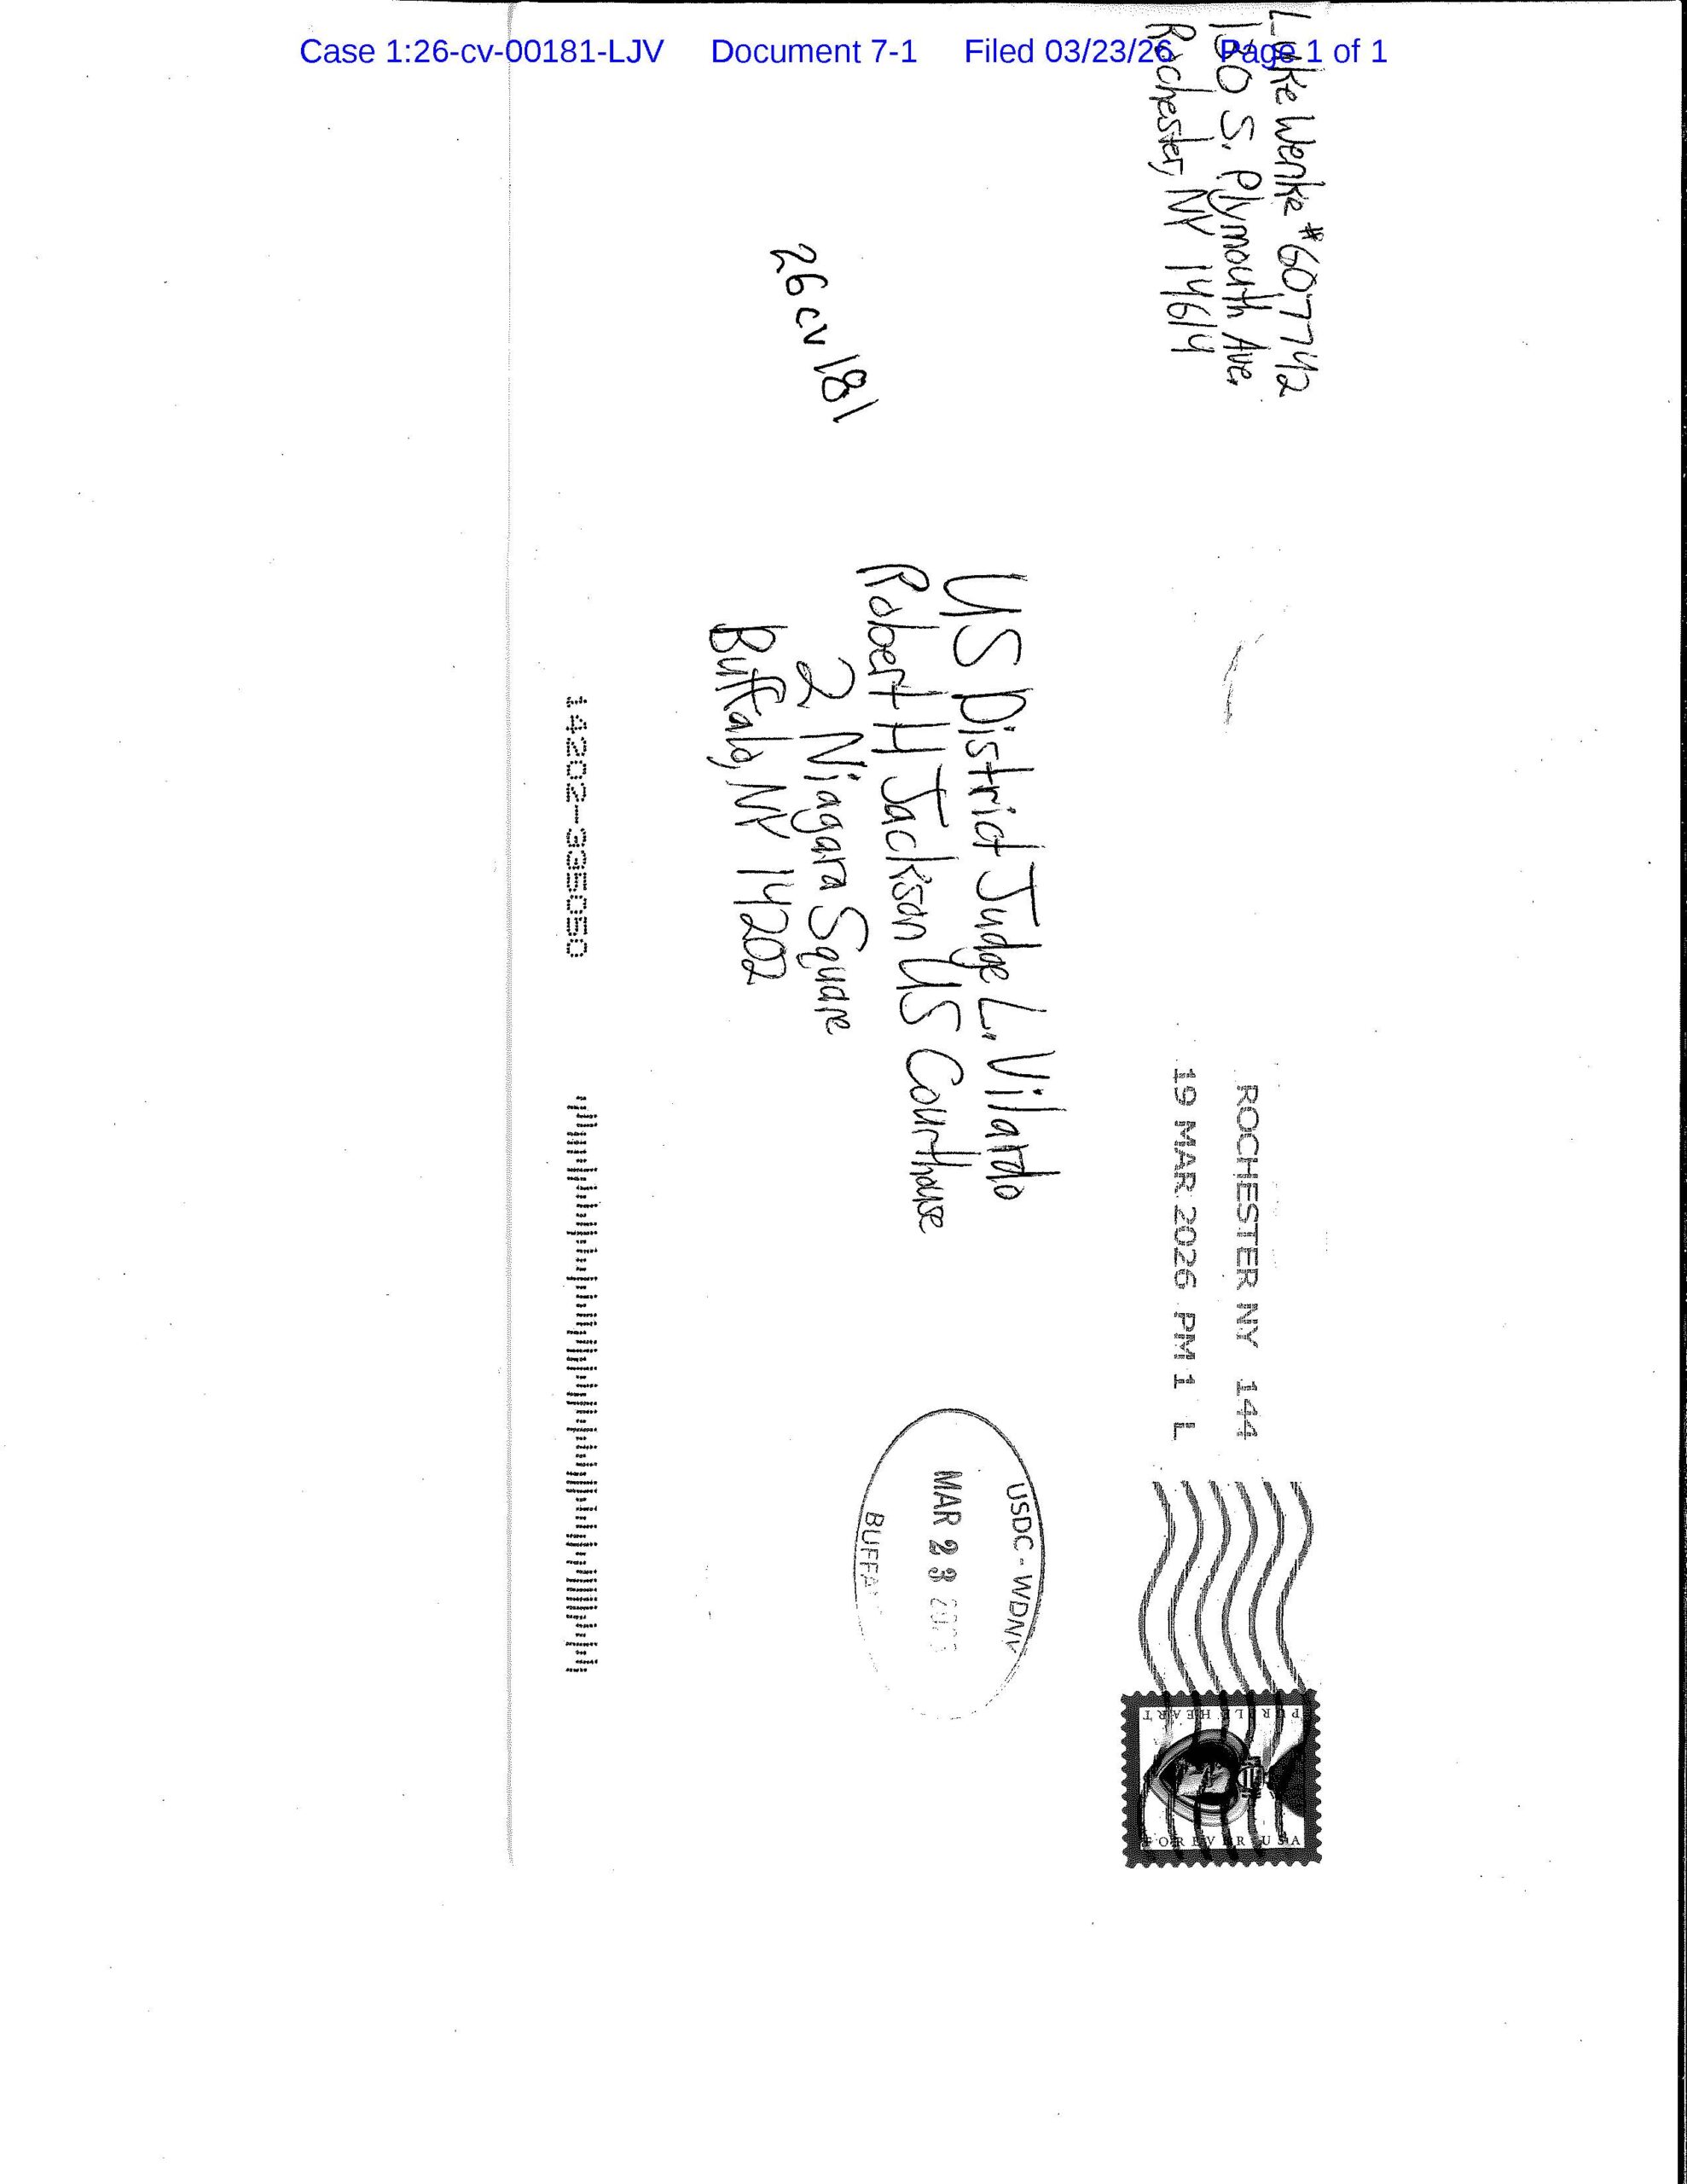 Case 1:26-cv-00181-LJV Document 7-1 Filed 03/23/26 Page 1 of 1
Luke Wenke #607742
130 S. Plymouth Ave.
Rochester, NY 14614
ROCHESTER NY 144
19 MAR 2026 PM 1 L
PURPLE HEART
FOREVER USA
US District Judge L. Vilardo
Robert H Jackson US Courthouse
2 Niagara Square
Buffalo, NY 14202
26 cv 181
USDC - WDNY
MAR 23
14202-335050